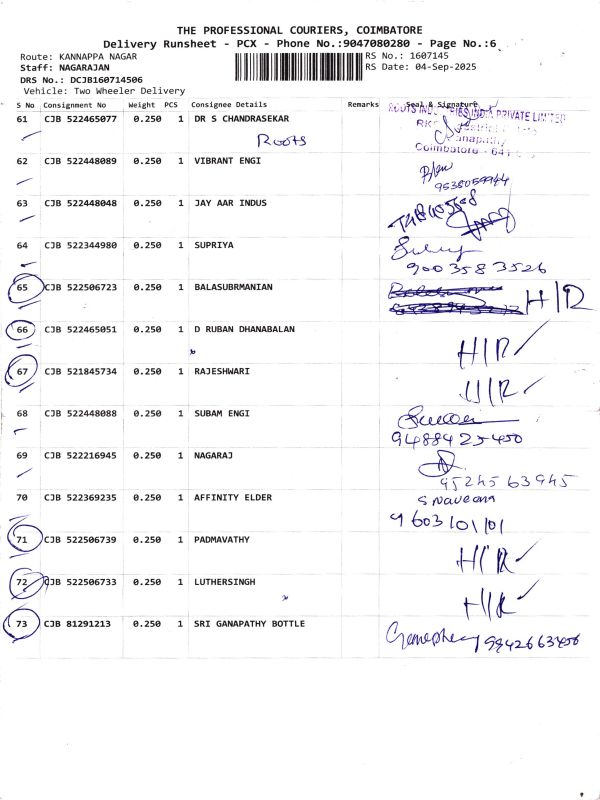 THE PROFESSIONAL COURIERS, COIMBATORE
Delivery Runsheet - PCX - Phone No.:9047080280 - Page No.:6
Route: KANNAPPA NAGAR RS No.: 1607145
Staff: NAGARAJAN RS Date: 04-Sep-2025
DRS No.: DCJB160714506
Vehicle: Two Wheeler Delivery
S No Consignment No Weight PCS Consignee Details Remarks Seal & Signature
61 CJB 522465077 0.250 1 DR S CHANDRASEKAR
PRIVATE LIMITED
Roots
Coimbatore - 641
62 CJB 522448089 0.250 1 VIBRANT ENGI
63 CJB 522448048 0.250 1 JAY AAR INDUS
64 CJB 522344980 0.250 1 SUPRIYA
900 358 3526
65 CJB 522506723 0.250 1 BALASUBRMANIAN H/R
66 CJB 522465051 0.250 1 D RUBAN DHANABALAN
H/R ✓
67 CJB 521845734 0.250 1 RAJESHWARI
H/R ✓
68 CJB 522448088 0.250 1 SUBAM ENGI
94884 25450
69 CJB 522216945 0.250 1 NAGARAJ
95245 63945
70 CJB 522369235 0.250 1 AFFINITY ELDER S Naveena
9603101101
71 CJB 522506739 0.250 1 PADMAVATHY
H/R ✓
72 CJB 522506733 0.250 1 LUTHERSINGH
H/R ✓
73 CJB 81291213 0.250 1 SRI GANAPATHY BOTTLE
9942663456